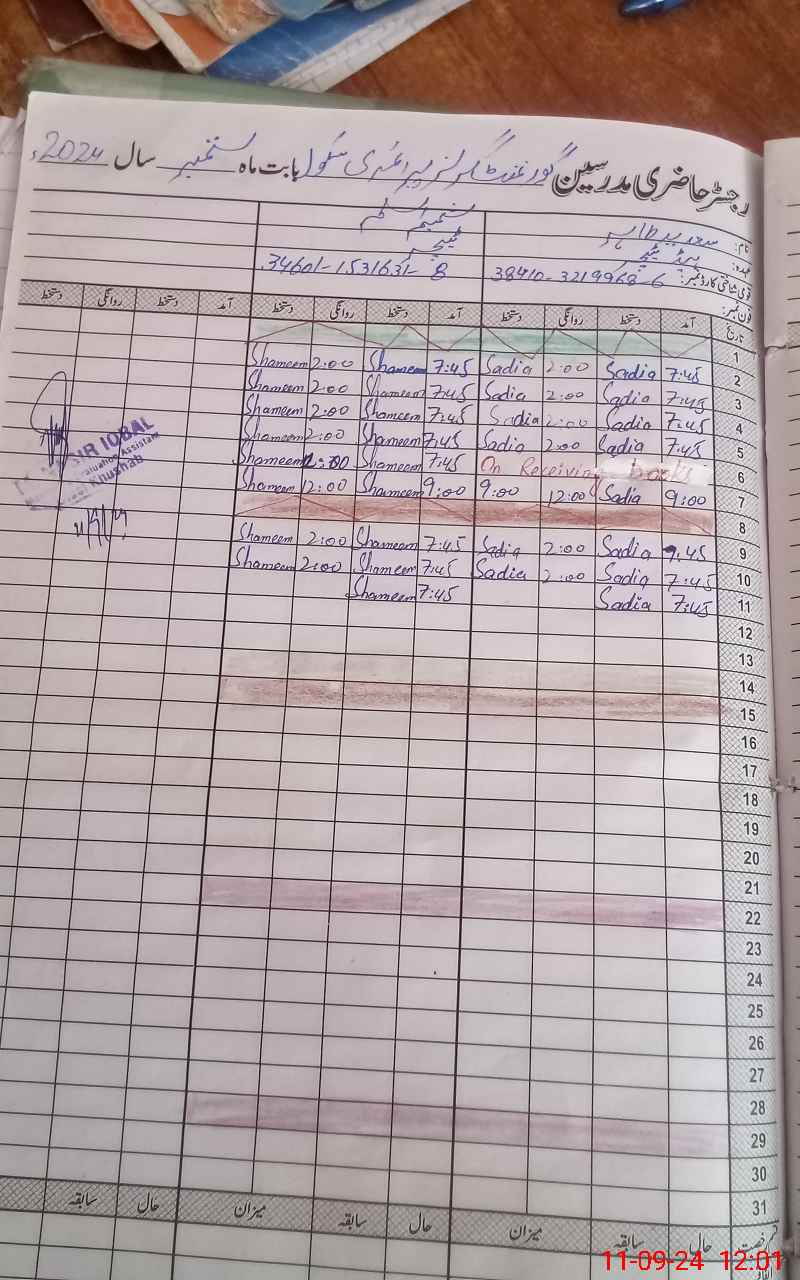 رجسٹر حاضری مدرسین گورنمنٹ گرلز پرائمری سکول بابت ماہ ستمبر سال 2024ء
نام: سعدیہ طاہر شمیم اسلم
عہدہ: ہیڈ ٹیچر ٹیچر
قومی شناختی کارڈ نمبر: 38410-3219968-6 34601-1531631-8
فون نمبر:
تاریخ آمد دستخط روانگی دستخط آمد دستخط روانگی دستخط آمد دستخط روانگی دستخط
1
2 7:45 Sadia 2:00 Sadia 7:45 Shameem 2:00 Shameem
3 7:45 Sadia 2:00 Sadia 7:45 Shameem 2:00 Shameem
4 7:45 Sadia 2:00 Sadia 7:45 Shameem 2:00 Shameem
5 7:45 Sadia 2:00 Sadia 7:45 Shameem 2:00 Shameem
6 On Receiving books 7:45 Shameem Shameem
7 9:00 Sadia 12:00 9:00 9:00 Shameem 12:00 Shameem
8
9 7:45 Sadia 2:00 Sadia 7:45 Shameem 2:00 Shameem
10 7:45 Sadia 2:00 Sadia 7:45 Shameem 2:00 Shameem
11 7:45 Sadia 7:45 Shameem
SIR IQBAL
Evaluation Assistant
Khushab
12
13
14
15
16
17
18
19
20
21
22
23
24
25
26
27
28
29
30
31
قسم رخصت حال سابقہ میزان حال سابقہ میزان حال سابقہ
11-09-24 12:01